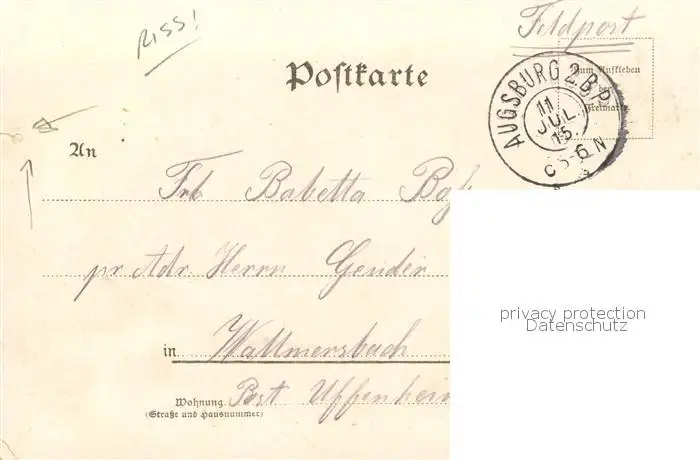 RISS!
Feldpost
Postkarte
Zum Aufkleben
der
Freimarke
AUGSBURG 2.B.P.
11
JUL.
15.
5-6 N
An
Babetta
pr Adr. Herrn Gender
in Wallmersbach
Wohnung Post Uffenheim
(Straße und Hausnummer)
privacy protection
Datenschutz